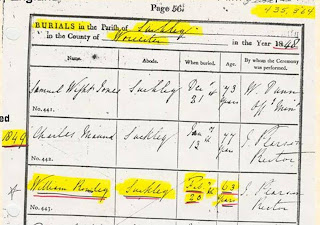 Page 56.
435,564
BURIALS in the Parish of Suckley
in the County of Worcester in the Year 1848
Name. Abode. When buried. Age. By whom the Ceremony was performed.
Samuel Jones Suckley Decr 31st 43 years W. Dunn Offg Minr
No. 441.
1849
Charles Maund Suckley Jany 13th 77 years J. Pearson Rector
No. 442.
William Suckley Feby 20th 63 years J. Pearson Rector
No. 443.